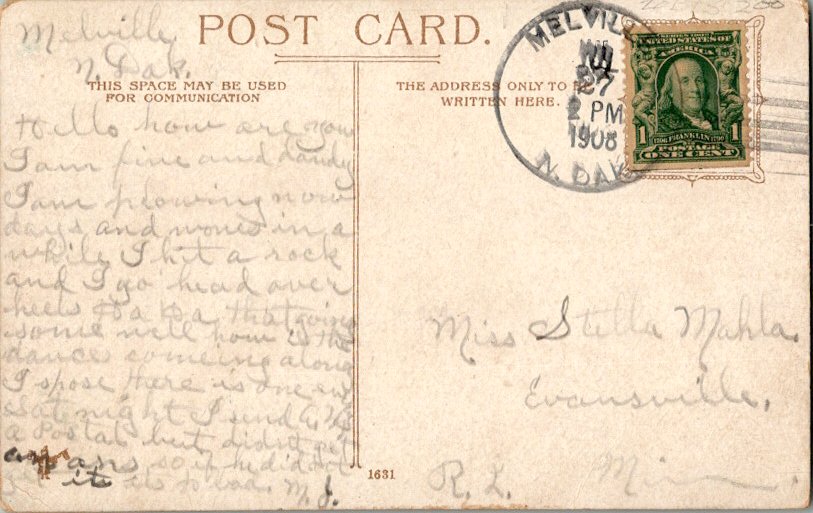 Melville
N. Dak.
POST CARD.
THIS SPACE MAY BE USED
FOR COMMUNICATION
THE ADDRESS ONLY TO BE
WRITTEN HERE.
MELVILLE
27
2 PM
1908
N. DAK.
SERIES 1902
UNITED STATES OF
AMERICA
1 1
1706 FRANKLIN 1790
POSTAGE
ONE CENT
Hello how are you
I am fine and dandy
I am plowing now
days and wonce in a
while I hit a rock
and I go head over
heels Ha Ha that going
some well how is the
dances someing along
I spose there is one eve
Sate night I send
a Postal but didnt get
an ans, so if he did not
it is to bad. M. J.
Miss Stella Mahla.
Evansville,
R. 1. Minn
1631